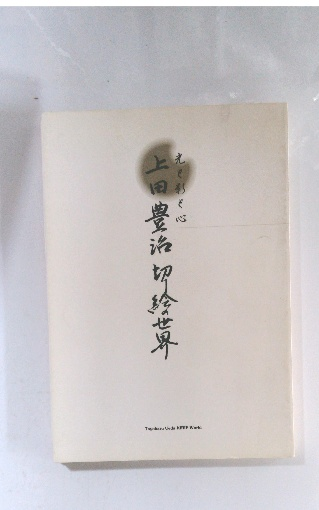 光と影と心
上田豊治 切り絵の世界
Toyoharu Ueda KIRIE World